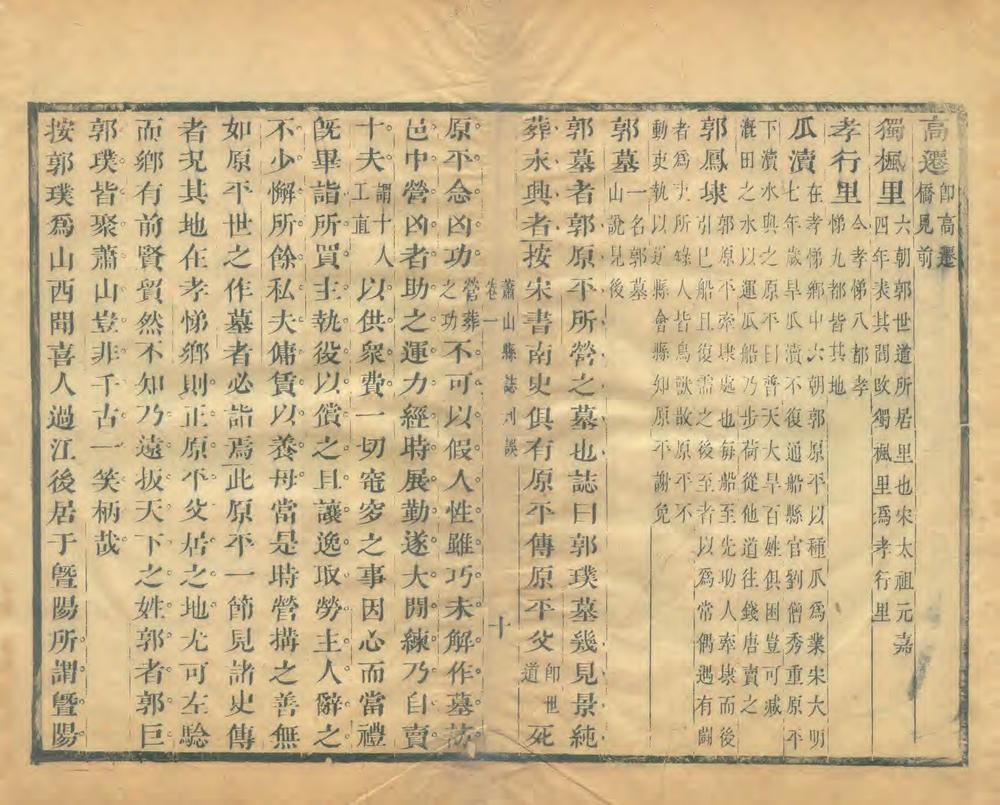 高遷即高遷橋見前
獨楓里六朝郭世道所居里也宋太祖元嘉四年表其閭改獨楓里爲孝行里
孝行里今孝悌八都孝悌九都皆其地
瓜瀆在孝悌鄉中六朝郭原平以種瓜爲業宋大明七年歲旱瓜瀆不復通船縣官劉僧秀重原平
下瀆水與之原平曰普天大旱百姓俱困豈可減溉田之水以運瓜船乃步荷從他道往錢唐賣之
郭鳳埭郭原平牽埭處也每船至先助人牽埭而後引已船且復需之後至者以爲常偶遇有鬬
者爲吏所錄人皆鳥獸散原平不動吏執以送縣會縣知原平謝免
郭墓一名郭墓山說見後
郭墓者郭原平所營之墓也誌曰郭璞墓幾見景純
葬永興者按宋書南史俱有原平傳原平父即世道死
蕭山縣誌刋誤
卷一
十
原平念凶功營葬之功不可以假人性雖巧未解作墓訪
邑中營凶者助之運力經時展勤遂大閒練乃自賣
十夫謂十人工直以供衆費一切窀穸之事因心而當禮
旣畢詣所買主執役以償之且讓逸取勞主人辭之
不少懈所餘私夫傭賃以養母當是時營搆之善無
如原平世之作墓者必詣焉此原平一節見諸史傳
者况其地在孝悌鄉則正原平父居之地尤可左騐
而鄉有前賢貿然不知乃遠扳天下之姓郭者郭巨
郭璞皆聚蕭山豈非千古一笑柄哉
按郭璞爲山西聞喜人過江後居于曁陽所謂曁陽